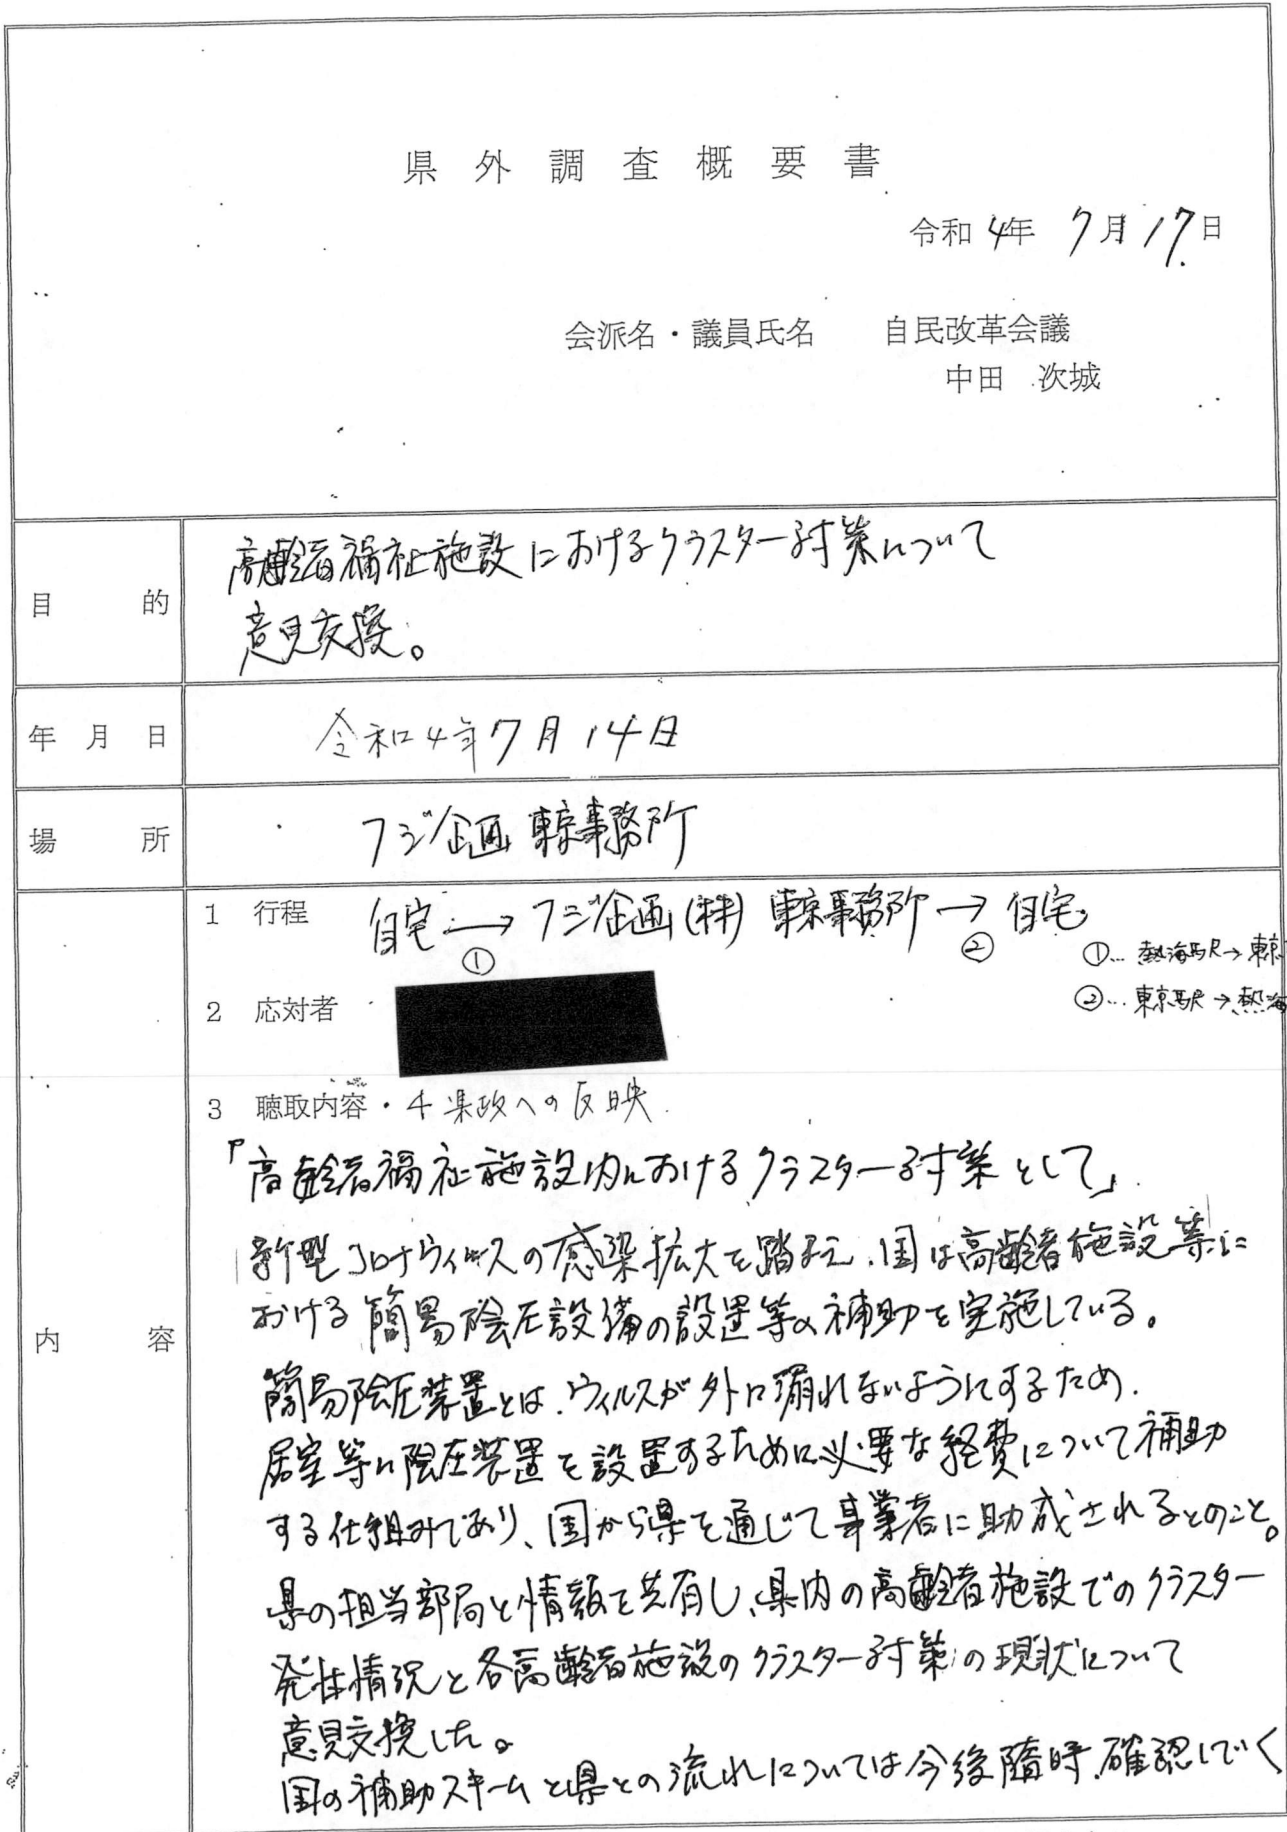 県外調査概要書
令和 4年 7月 17日
会派名・議員氏名 自民改革会議
中田 次城
目的
高齢者福祉施設におけるクラスター対策について
意見交換。
年月日
令和4年7月14日
場所
フジ企画 東京事務所
内容
1 行程 自宅 → フジ企画(株) 東京事務所 → 自宅
① ②
①… 熱海駅→東京
②… 東京駅→熱海
2 応対者
3 聴取内容・4 県政への反映
「高齢者福祉施設内におけるクラスター対策として」
新型コロナウィルスの感染拡大を踏まえ、国は高齢者施設等に
おける簡易陰圧設備の設置等の補助を実施している。
簡易陰圧装置とは、ウィルスが外に漏れないようにするため、
居室等に陰圧装置を設置するために必要な経費について補助
する仕組みであり、国から県を通じて事業者に助成されるとのこと。
県の担当部局と情報を共有し、県内の高齢者施設でのクラスター
発生情況と各高齢者施設のクラスター対策の現状について
意見交換した。
国の補助スキームと県との流れについては今後随時、確認していく